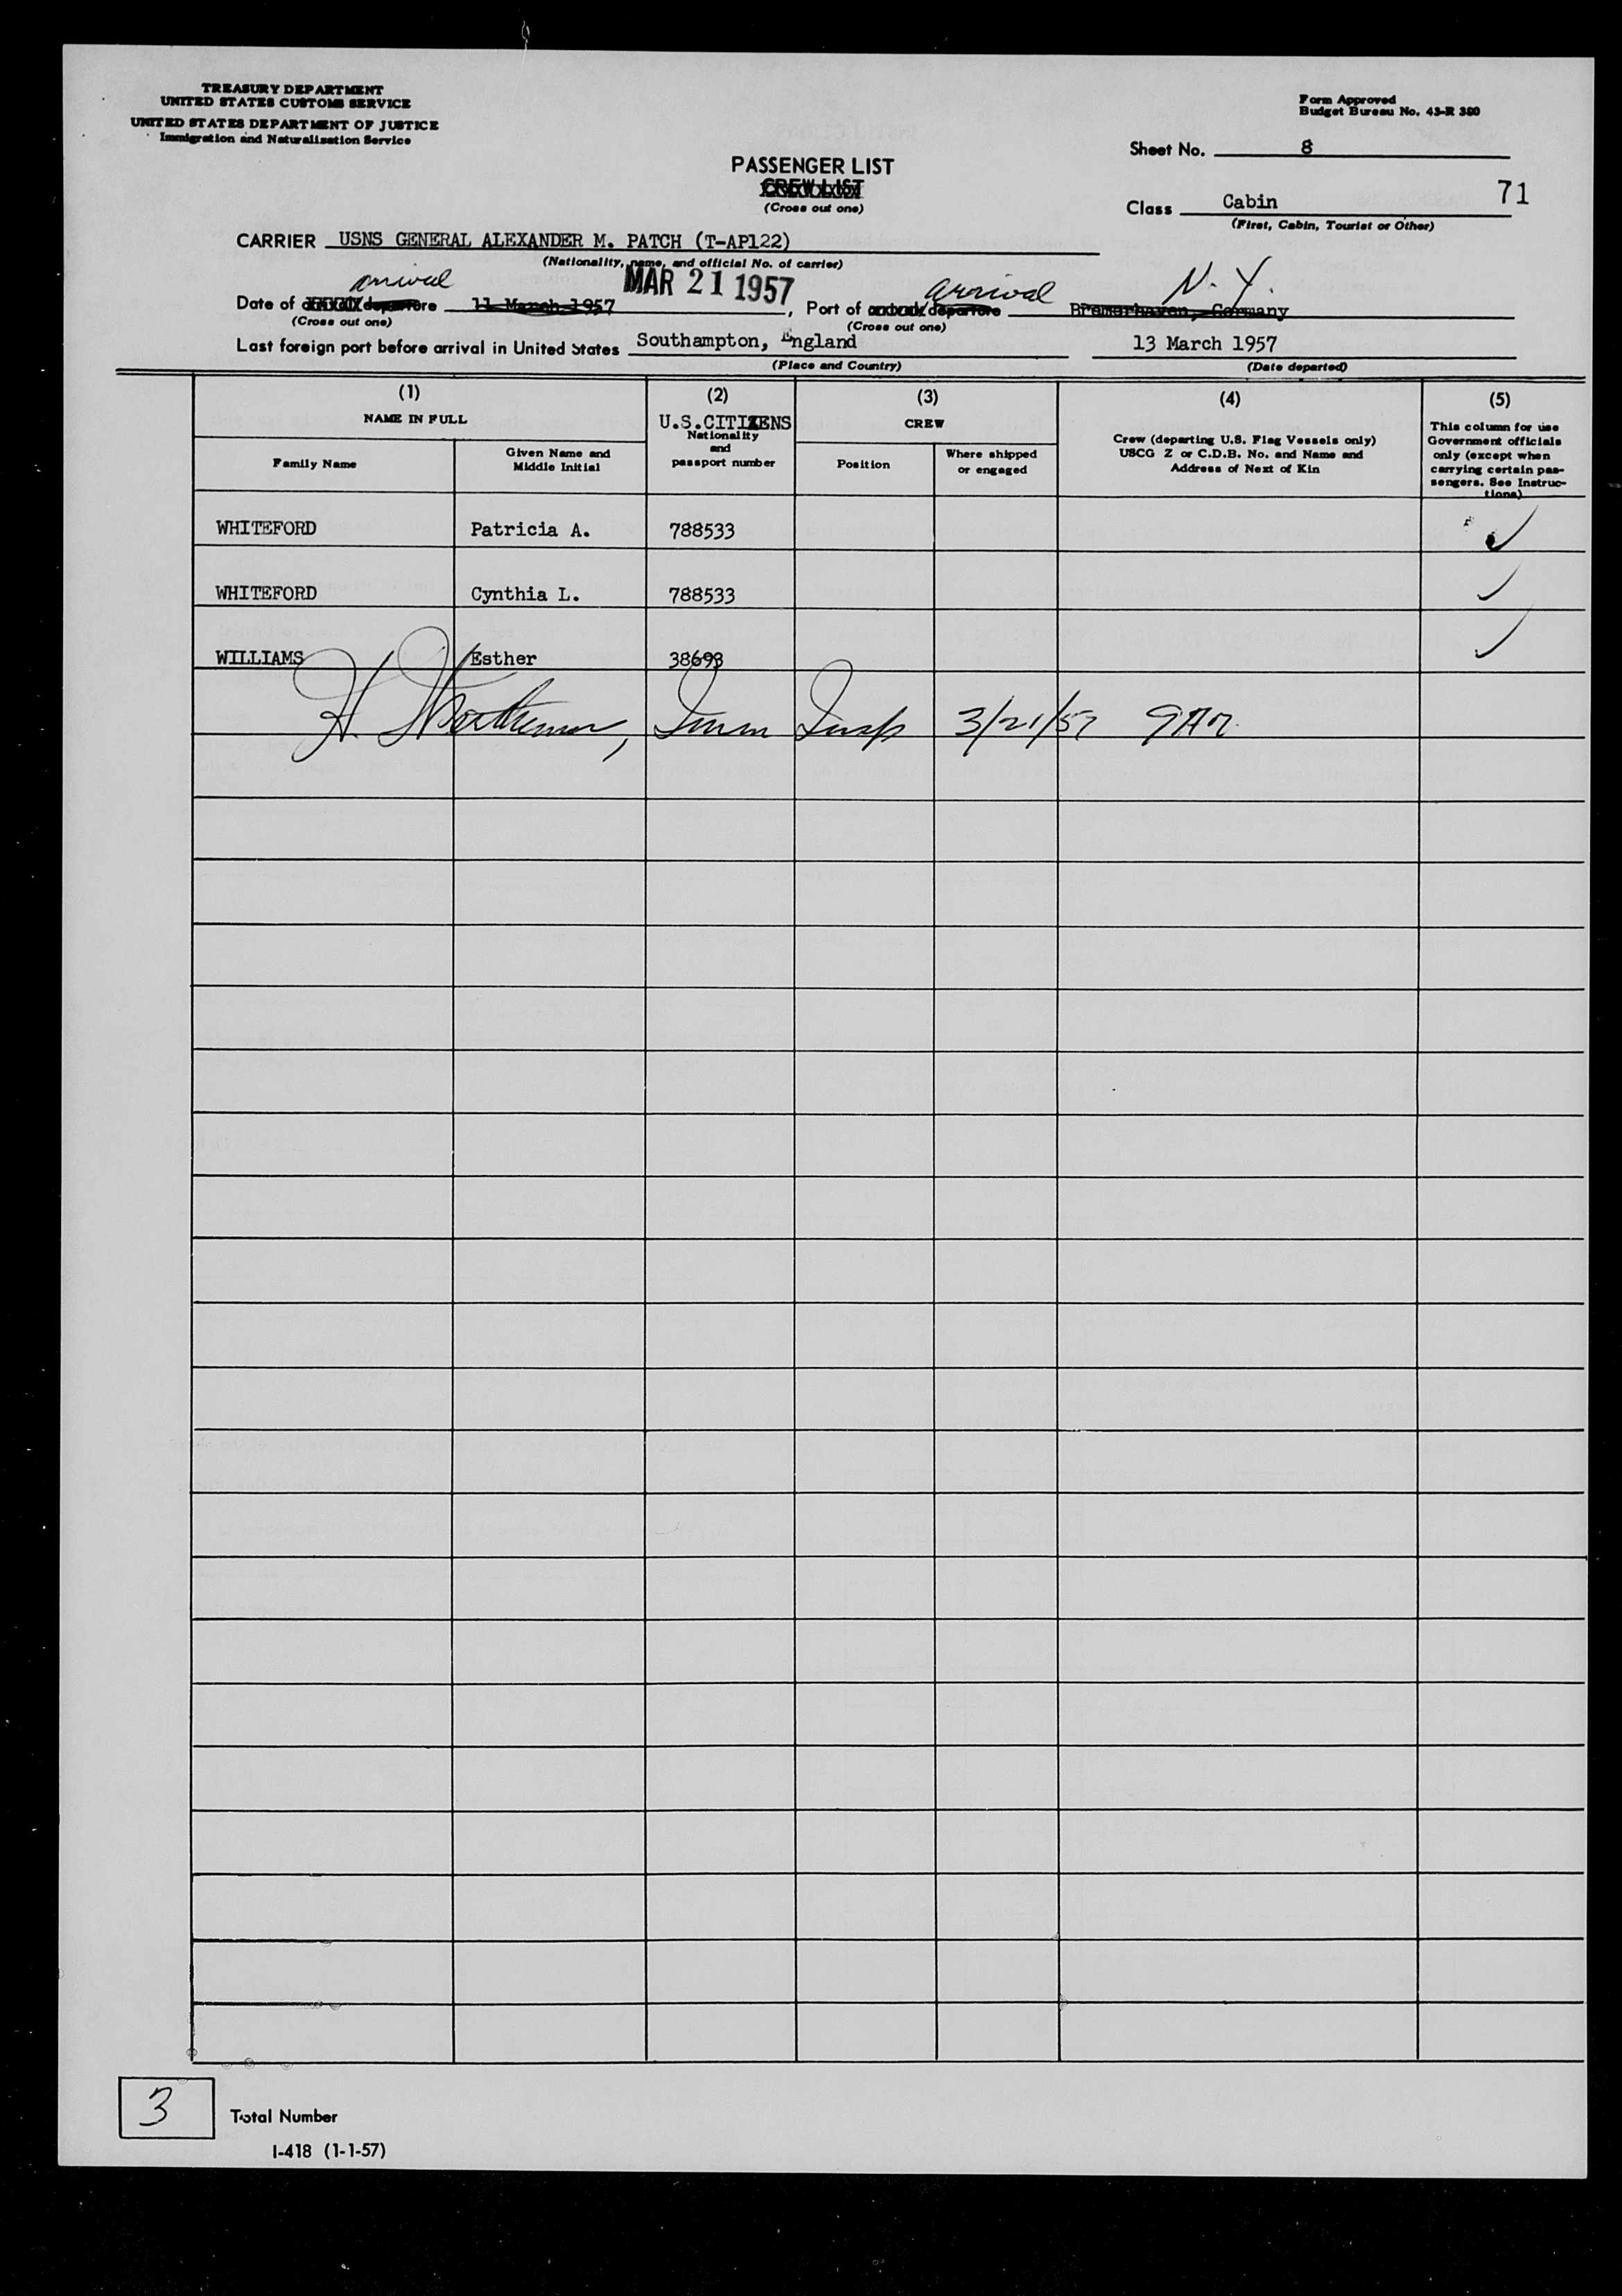 TREASURY DEPARTMENT
UNITED STATES CUSTOMS SERVICE
UNITED STATES DEPARTMENT OF JUSTICE
Immigration and Naturalization Service
Form Approved
Budget Bureau No. 43-R 380
Sheet No. 8
PASSENGER LIST
CREW LIST
(Cross out one)
71
Class Cabin
(First, Cabin, Tourist or Other)
CARRIER USNS GENERAL ALEXANDER M. PATCH (T-AP122)
(Nationality, name, and official No. of carrier)
arrival MAR 21 1957 arrival N. Y.
Date of departure 11 March 1957, Port of departure Bremerhaven, Germany
(Cross out one) (Cross out one)
Last foreign port before arrival in United States Southampton, England 13 March 1957
(Place and Country) (Date departed)
(1) (2) (3) (4) (5)
NAME IN FULL
U.S.CITIZENS
Nationality
and
passport number
CREW
Family Name
Given Name and
Middle Initial
Position
Where shipped
or engaged
Crew (departing U.S. Flag Vessels only)
USCG Z or C.D.B. No. and Name and
Address of Next of Kin
This column for use
Government officials
only (except when
carrying certain pas-
sengers. See Instruc-
tions)
WHITEFORD Patricia A. 788533 ✓
WHITEFORD Cynthia L. 788533 ✓
WILLIAMS Esther 38693 ✓
H. Imm Insp 3/21/57 9AM
3 Total Number
I-418 (1-1-57)